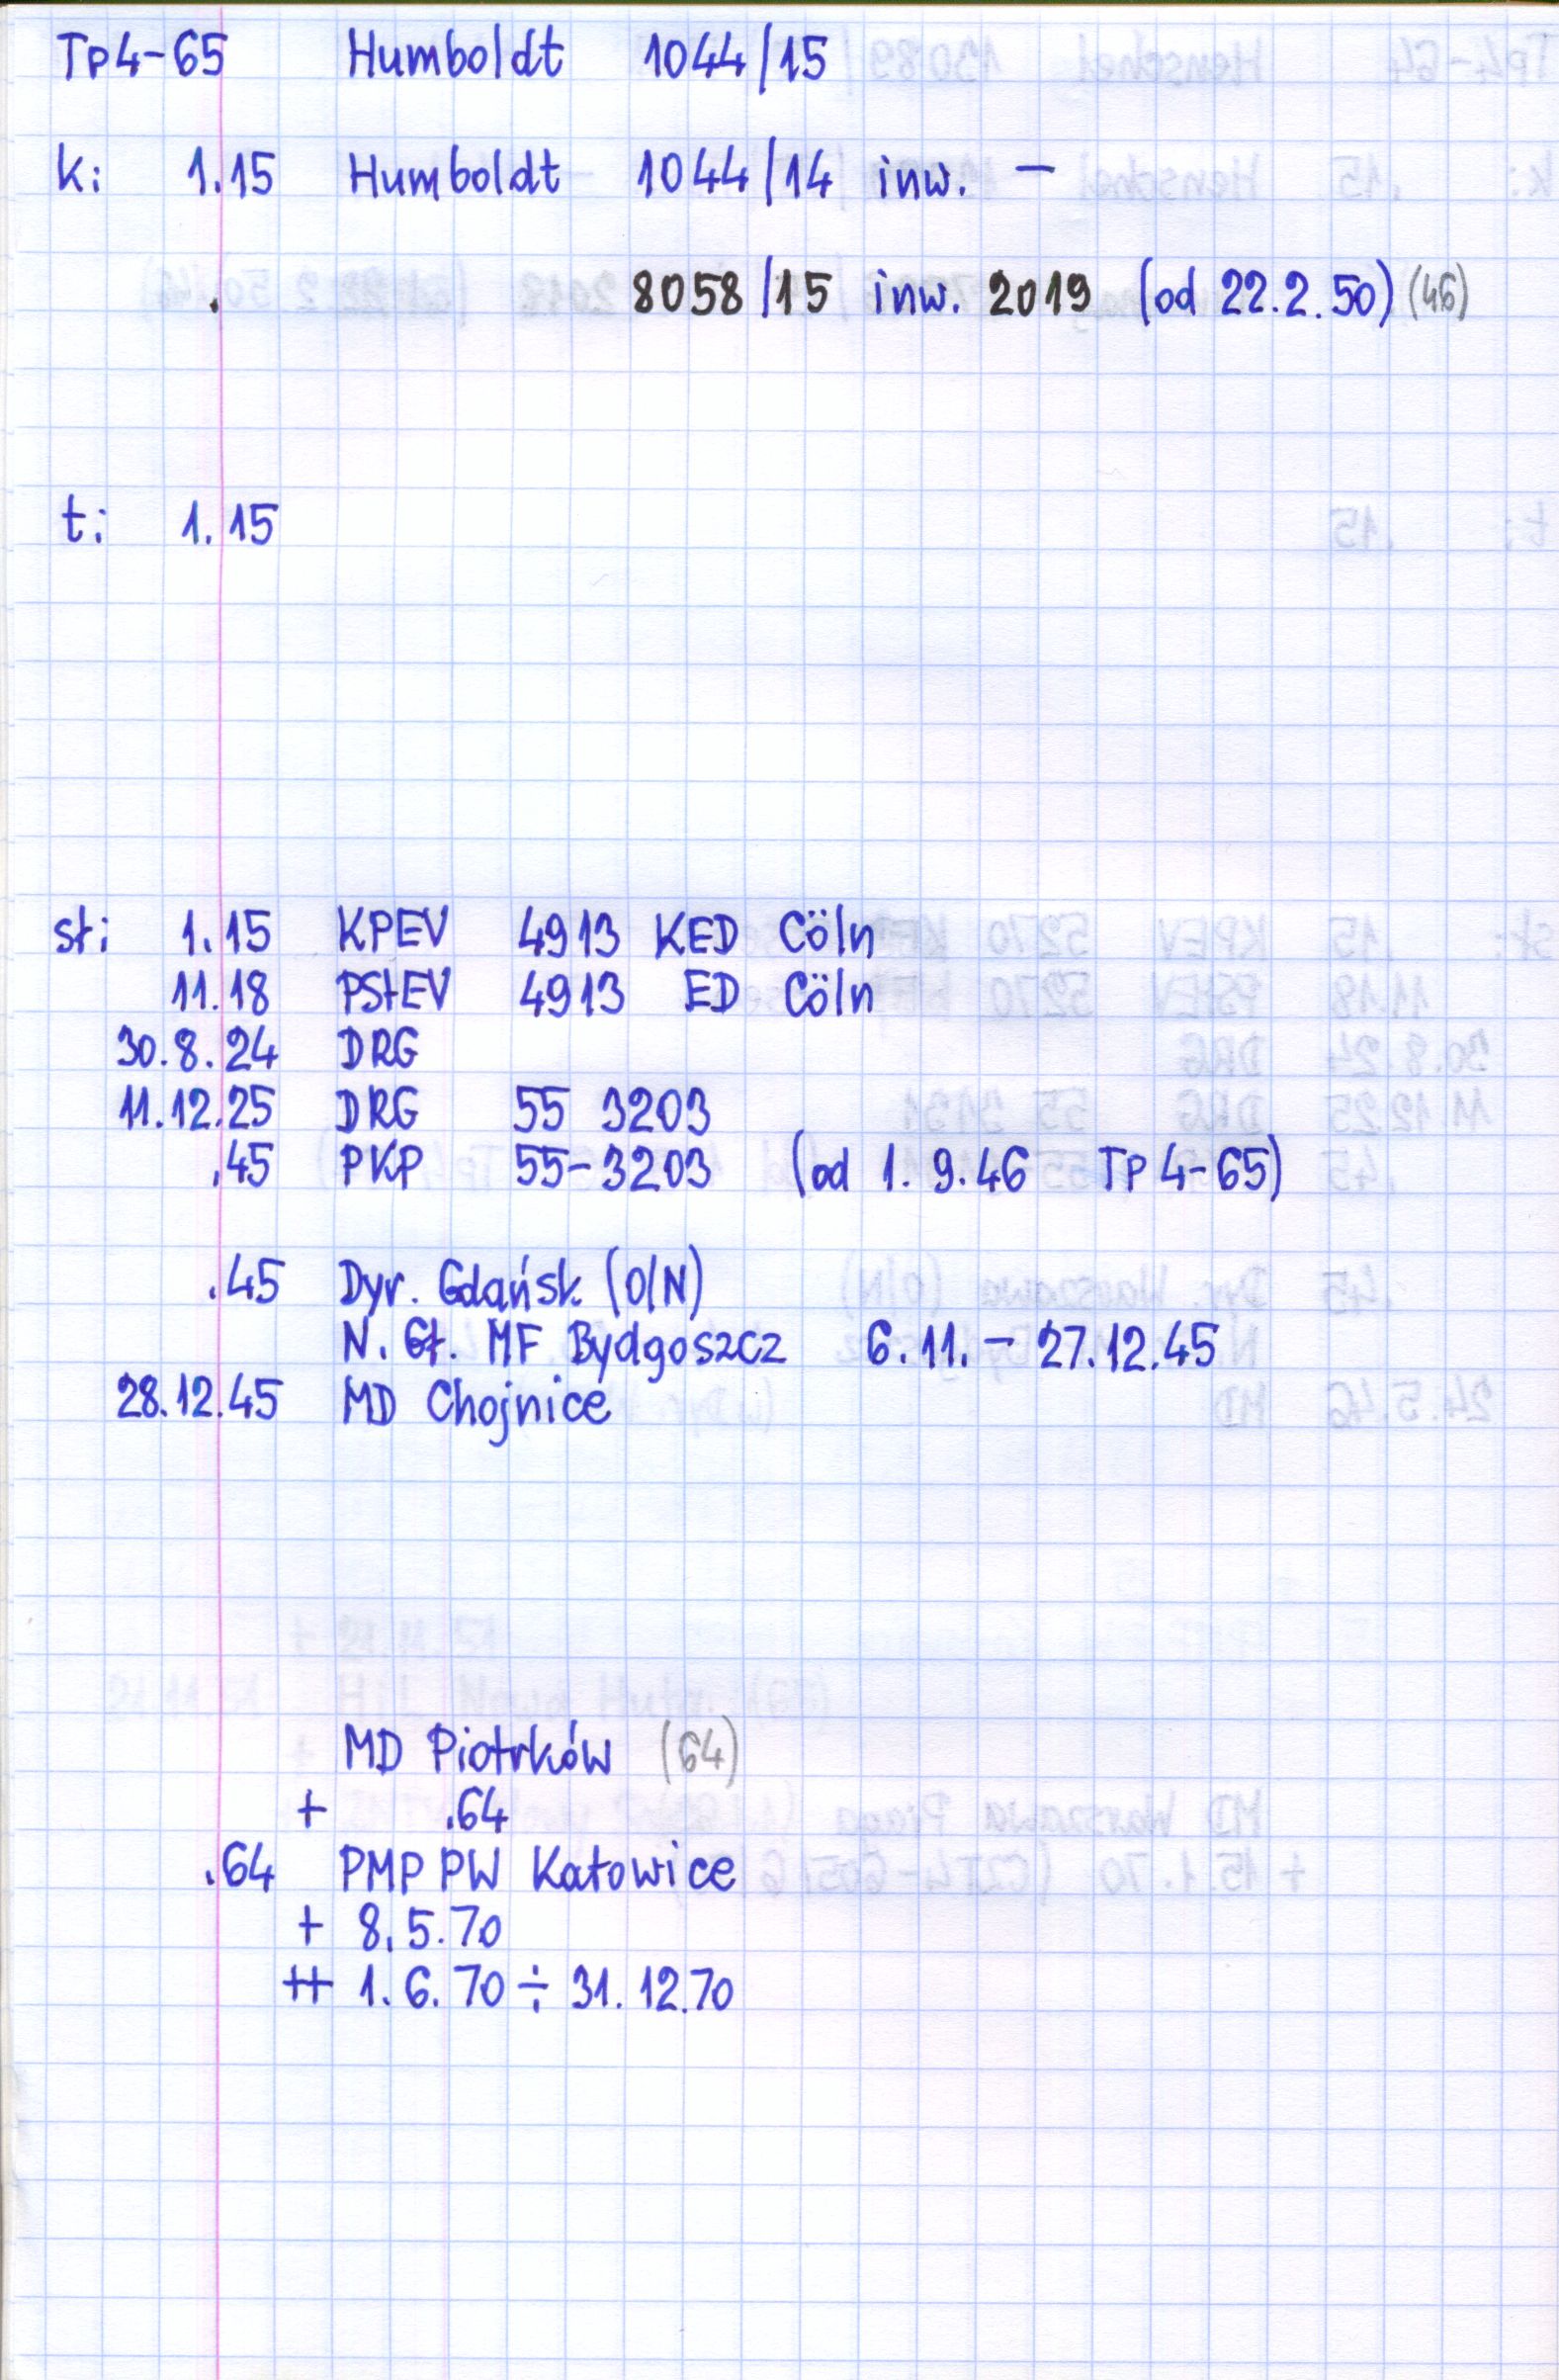 Tp4-65 Humboldt 1044/15
k: 1.15 Humboldt 1044/14 inw. –
. 8058/15 inw. 2019 (od 22.2.50) (46)
t: 1.15
st: 1.15 KPEV 4913 KED Cöln
11.18 PStEV 4913 ED Cöln
30.8.24 DRG
11.12.25 DRG 55 3203
.45 PKP 55-3203 (od 1.9.46 Tp4-65)
.45 Dyr. Gdańsk (O/N)
N. Gł. MF Bydgoszcz 6.11. – 27.12.45
28.12.45 MD Chojnice
MD Piotrków (64)
+ .64
.64 PMP PW Katowice
+ 8.5.70
++ 1.6.70 ÷ 31.12.70